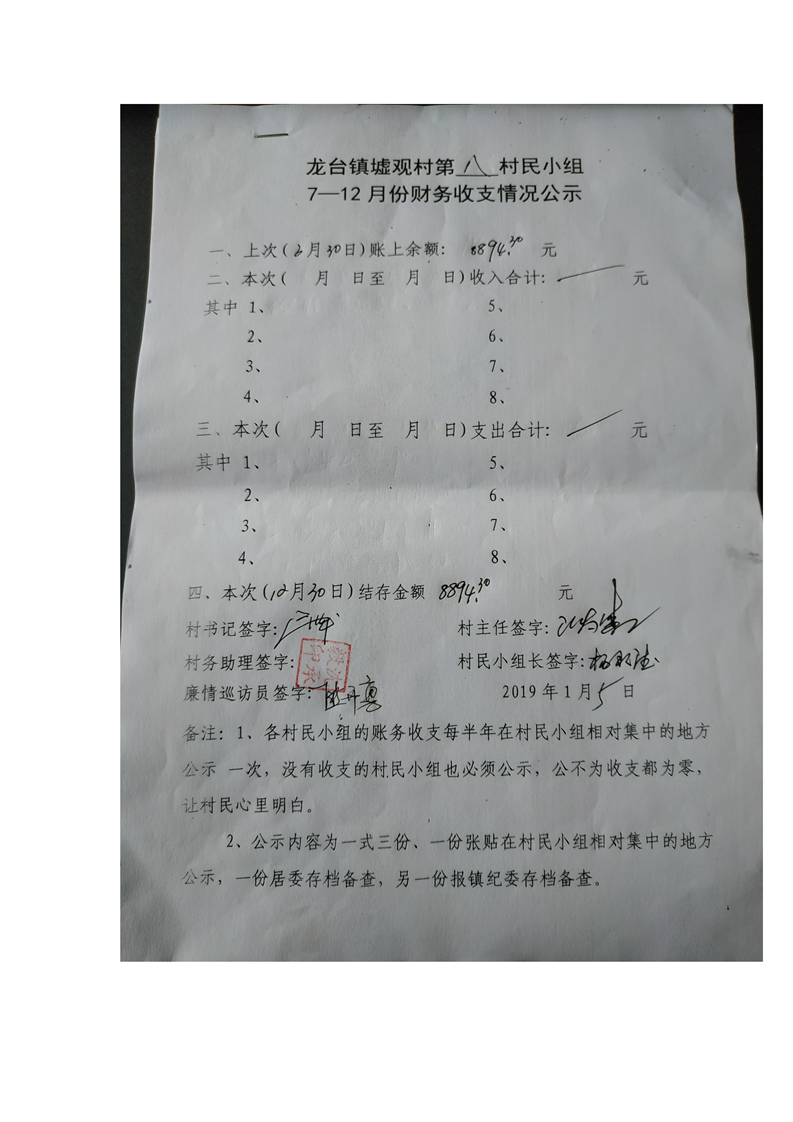 龙台镇墟观村第八村民小组
7—12月份财务收支情况公示
一、上次(6月30日)账上余额: 8894.30 元
二、本次( 月 日至 月 日)收入合计: 元
其中 1、 5、
2、 6、
3、 7、
4、 8、
三、本次( 月 日至 月 日)支出合计: 元
其中 1、 5、
2、 6、
3、 7、
4、 8、
四、本次(12月30日)结存金额 8894.30 元
村书记签字: 村主任签字:
村务助理签字: 村民小组长签字:
廉情巡访员签字: 2019年1月5日
备注: 1、各村民小组的账务收支每半年在村民小组相对集中的地方
公示 一次,没有收支的村民小组也必须公示,公不为收支都为零,
让村民心里明白。
2、公示内容为一式三份、一份张贴在村民小组相对集中的地方
公示,一份居委存档备查,另一份报镇纪委存档备查。